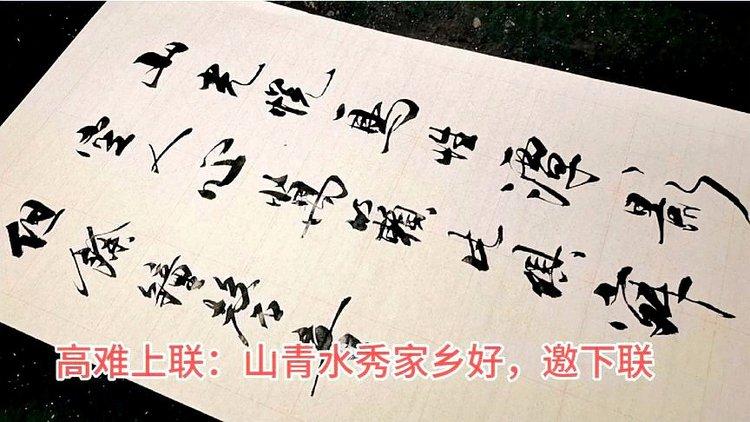 山光悦鳥性潭影
空人心萬籟此俱寂
但餘鐘磬音
高难上联：山青水秀家乡好，邀下联